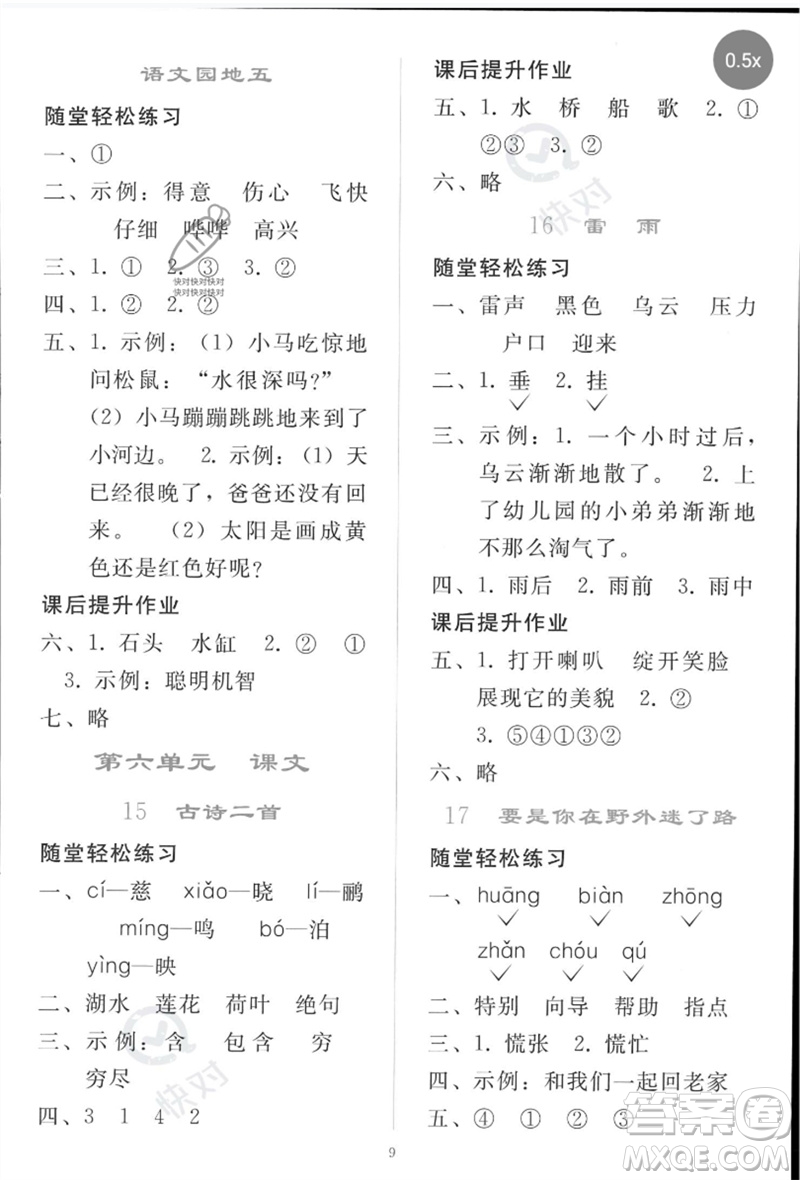 语文园地五
随堂轻松练习
一、①
二、示例：得意 伤心 飞快
仔细 哗哗 高兴
三、1. ① 2. ③ 3. ②
四、1. ② 2. ②
五、1. 示例：（1）小马吃惊地
问松鼠：“水很深吗?”
（2）小马蹦蹦跳跳地来到了
小河边。 2. 示例：（1）天
已经很晚了，爸爸还没有回
来。 （2）太阳是画成黄
色还是红色好呢?
课后提升作业
六、1. 石头 水缸 2. ② ①
3. 示例：聪明机智
七、略
第六单元 课文
15 古诗二首
随堂轻松练习
一、cí—慈 xiǎo—晓 lí—鹂
míng—鸣 bó—泊
yìng—映
二、湖水 莲花 荷叶 绝句
三、示例：含 包含 穷
穷尽
四、3 1 4 2
课后提升作业
五、1. 水 桥 船 歌 2. ①
②③ 3. ②
六、略
16 雷雨
随堂轻松练习
一、雷声 黑色 乌云 压力
户口 迎来
二、1. 垂 2. 挂
三、示例：1. 一个小时过后，
乌云渐渐地散了。 2. 上
了幼儿园的小弟弟渐渐地
不那么淘气了。
四、1. 雨后 2. 雨前 3. 雨中
课后提升作业
五、1. 打开喇叭 绽开笑脸
展现它的美貌 2. ②
3. ⑤④①③②
六、略
17 要是你在野外迷了路
随堂轻松练习
一、huāng biàn zhōng
zhǎn chóu qú
二、特别 向导 帮助 指点
三、1. 慌张 2. 慌忙
四、示例：和我们一起回老家
五、④ ① ② ③
9
0.5x
快对快对快对
快对快对快对
快对
快对
答案卷
MXQE.COM